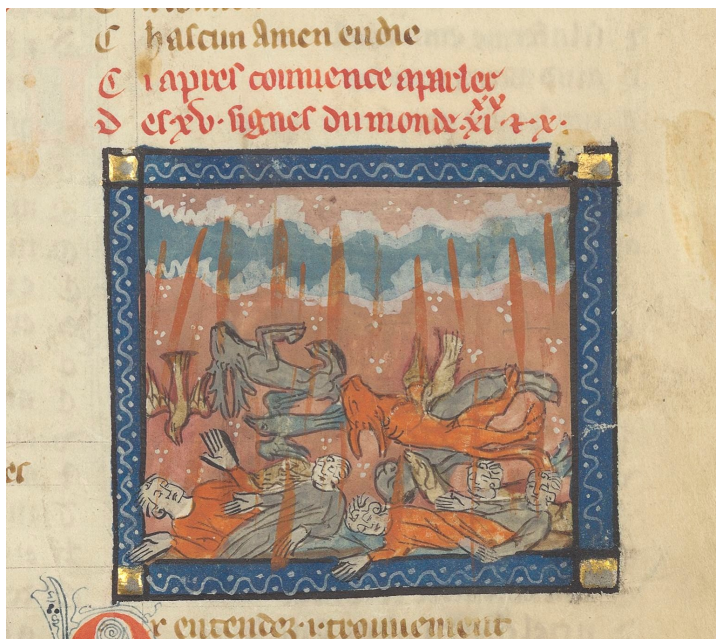 C hascun Amen en die
C i apres comence a parler
D es xv· signes du monde· xi xx · ⁊ · x ·
es
Or entendez · i · trouuement